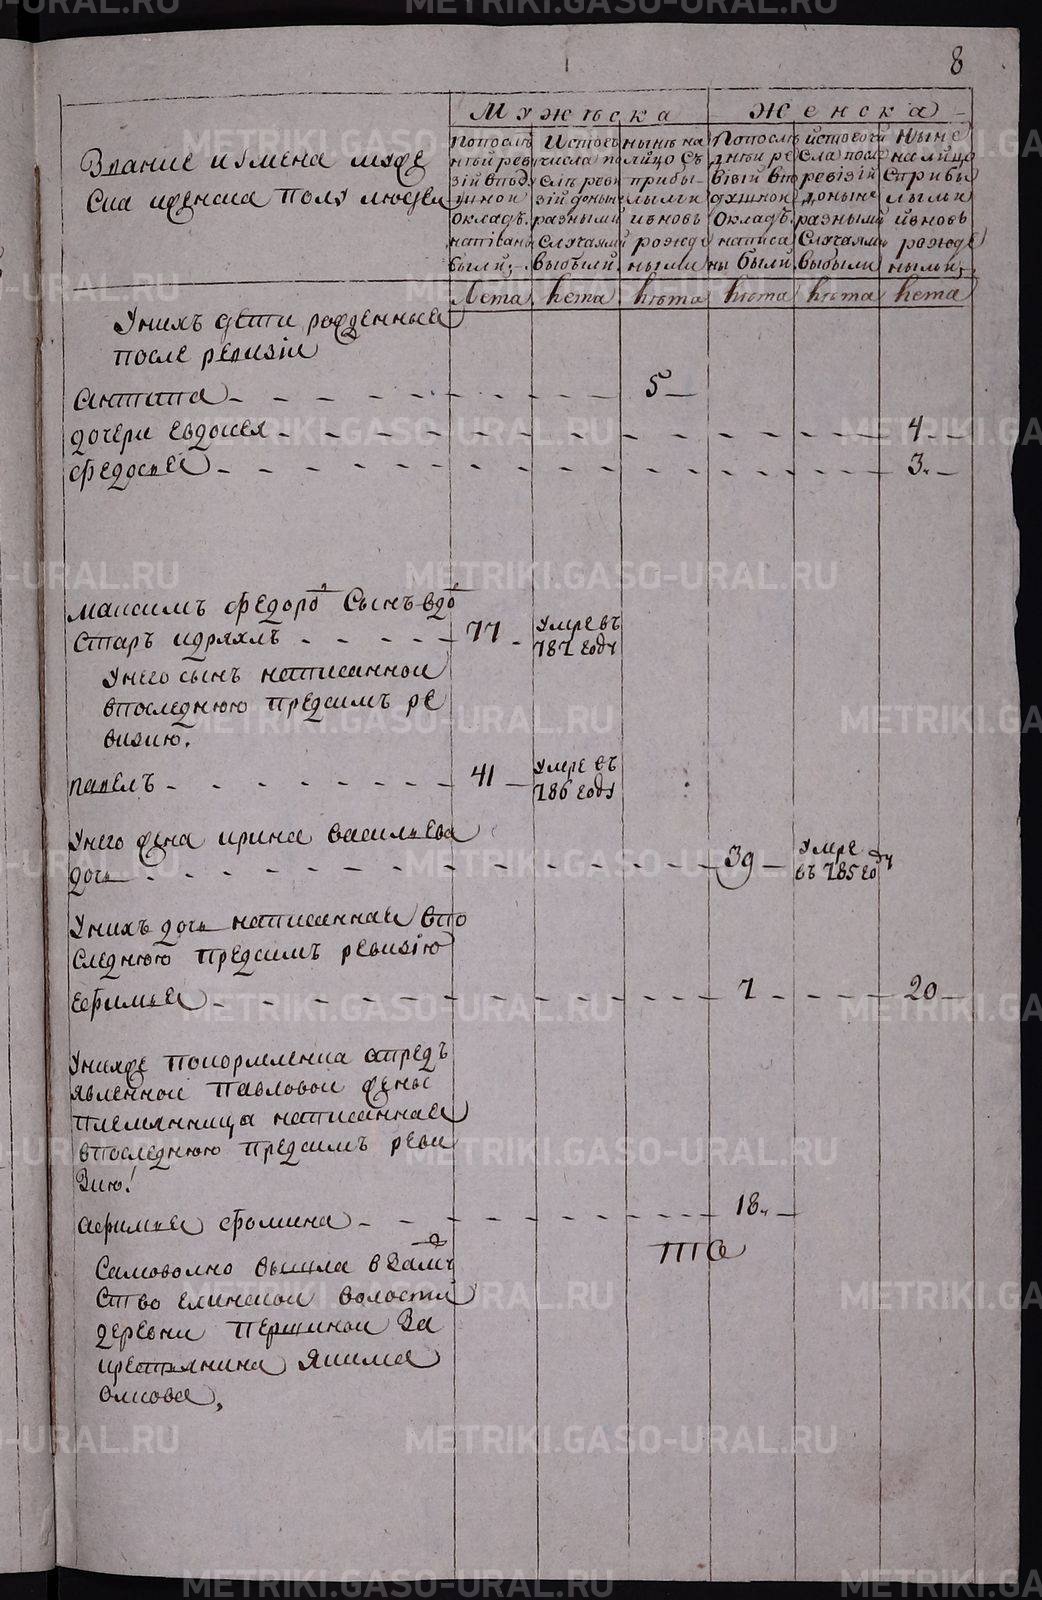 8
Мужеска
Женска
Звание и имена муже
ска иженска Полу людей
Попослѣ
днѣй рев
зiи впод
шной
окладѣ
написаны
были
Истого
числа по
слѣ реви
зiи доныне
разными
случаями
выбыли
нынѣ на
лицо съ
прибы
лыми
ивновь
рожде
ными
Попослѣ
дней ре
визiи впо
душной
окладъ
написа
ны были
истого чи
сла после
ревизiй
доныне
разными
Случаями
выбыли
Ныне
налицо
сприбы
лыми
ивновь
рожде
ными
Лета Лета Лета Лета Лета Лета
Унихъ дети рожденные
после ревизiи
Антипа 5
дочери Евдокея 4
Федосья 3
Максимъ Федоро в Сынъ вдо в
старъ идряхлъ 77 Умре въ
787 году
Унего сынъ написанной
впоследнюю предсимъ ре
визию.
павелъ 41 Умре въ
786 году
Унего жена ирина васильева
дочь 39 Умре
въ 785 году
Унихъ дочь написанная впо
следнюю предсимъ ревизiю
Ефимья 7 20
Унихже покормленка апредъ
явленной Павловой жены
племянница написанная
впоследнюю предсимъ реви
зию!
афимья Фомина 18
та
Самовольно вышла взаму
ство елинской волости
деревни Першиной За
крестьянина Якима